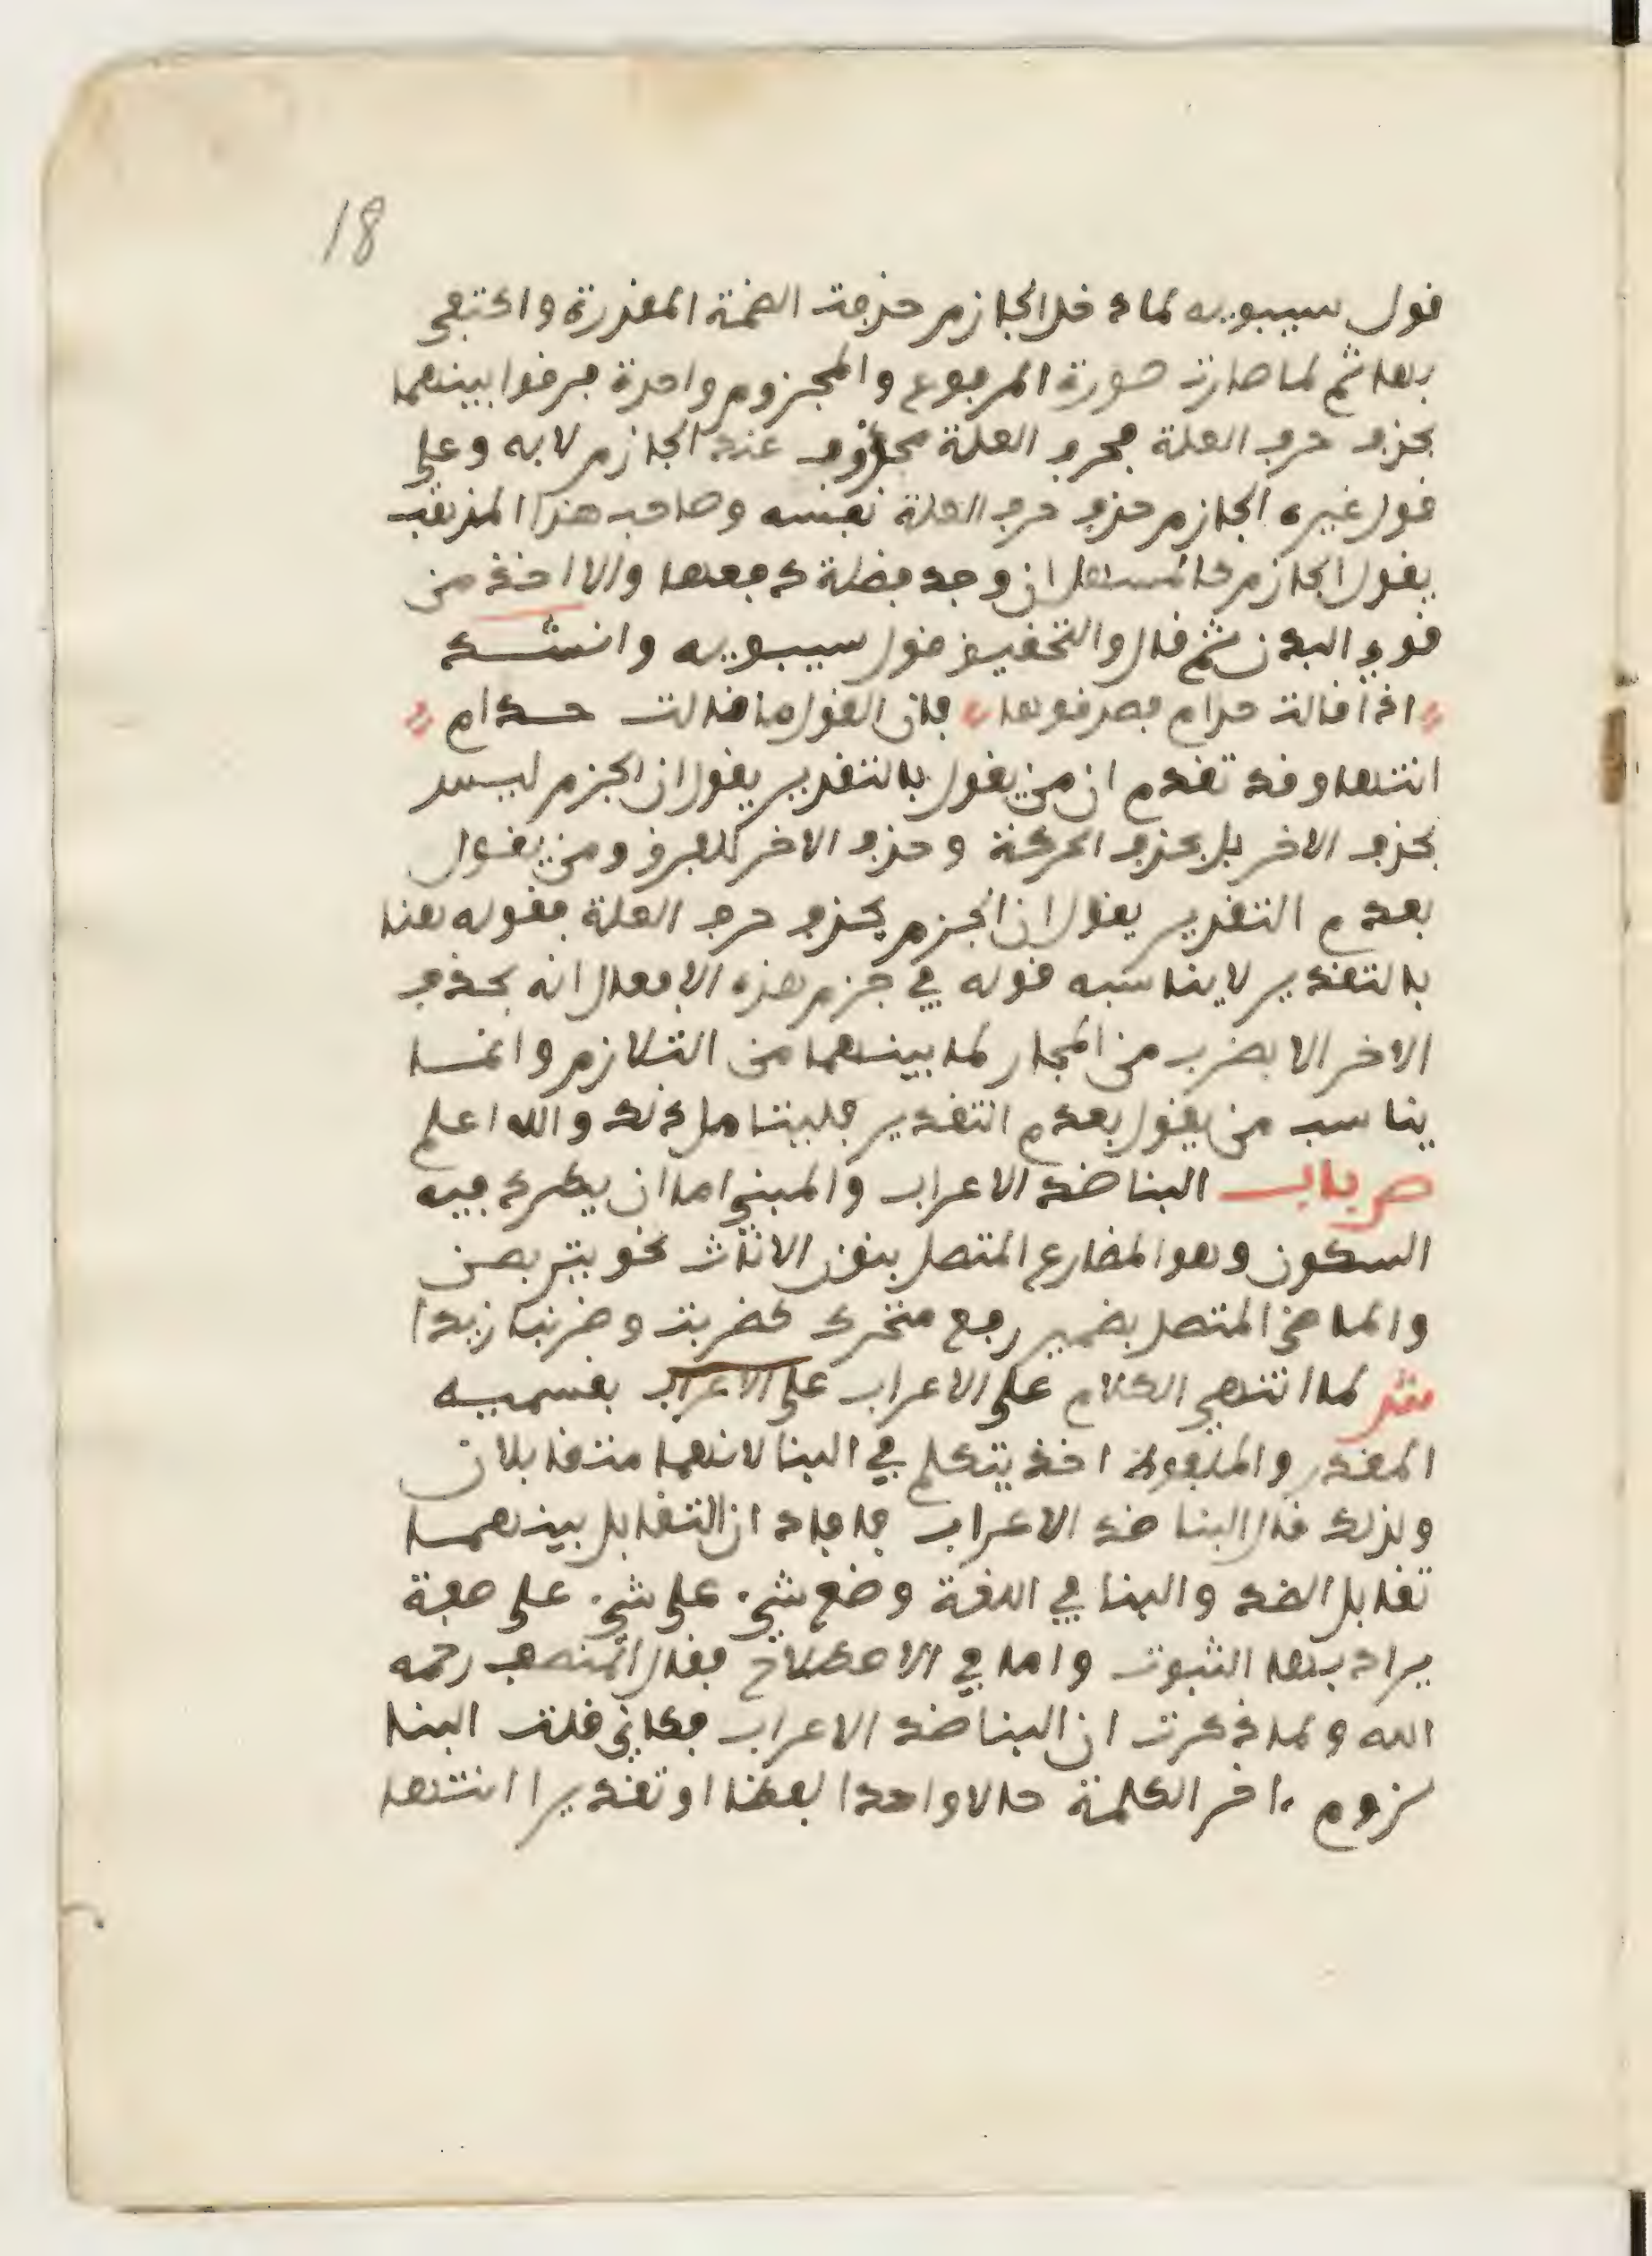 18
قول سيبويه لما دخل الجازم حذفت الضمة المقدرة واكتفي
بها ثم لما صارت صورة المرفوع والمجزوم واحدة فرقوا بينهما
بحذف حرف العلة فحرف العلة محذوف عند الجازم لا به وعلى
قول غيره الجازم حذف حرف العلة نفسه وصاحب هذا المذهب
يقول الجازم كالمسهل ان وجد فضلة دفعها والا اخذ من
قوى البدن ثم قال والتحقيق قول سيبويه وانشد
اذا قالت حذام فصدقوها فان القول ما قالت حذام
انتهى وقد تقدم ان من يقول بالتقدير يقول ان الجزم ليس
بحذف الاخر بل بحذف الحركة وحذف الاخر للفرق ومن يقول
بعدم التقدير يقول ان الجزم بحذف حرف العلة فقوله هنا
بالتقدير لا يناسبه قوله في جزم هذه الافعال انه بحذف
الاخر الا بضرب من المجاز لما بينهما من التلازم وانما
يناسب من يقول بعدم التقدير فليتامل ذلك والله اعلم
ص باب البنا ضد الاعراب والمبني اما ان يطرد فيه
السكون وهو المضارع المتصل بنون الاناث نحو يتربصن
والماضي المتصل بضمير رفع متحرك كضربت وضربنا زيدا
ش لما انتهى الكلام على الاعراب على الاعراب بقسميه
المقدر والملفوظ اخذ يتكلم في البنا لانهما متقابلان
ولذلك قال البنا ضد الاعراب فافاد ان التقابل بينهما
تقابل الضد والبنا في اللغة وضع شيء على شيء على صفة
يراد بها الثبوت واما في الاصطلاح فقال المصنف رحمه
الله ولما ذكرت ان البنا ضد الاعراب فكاني قلت البنا
لزوم ءاخر الكلمة حالا واحدا لفظا او تقديرا انتهى